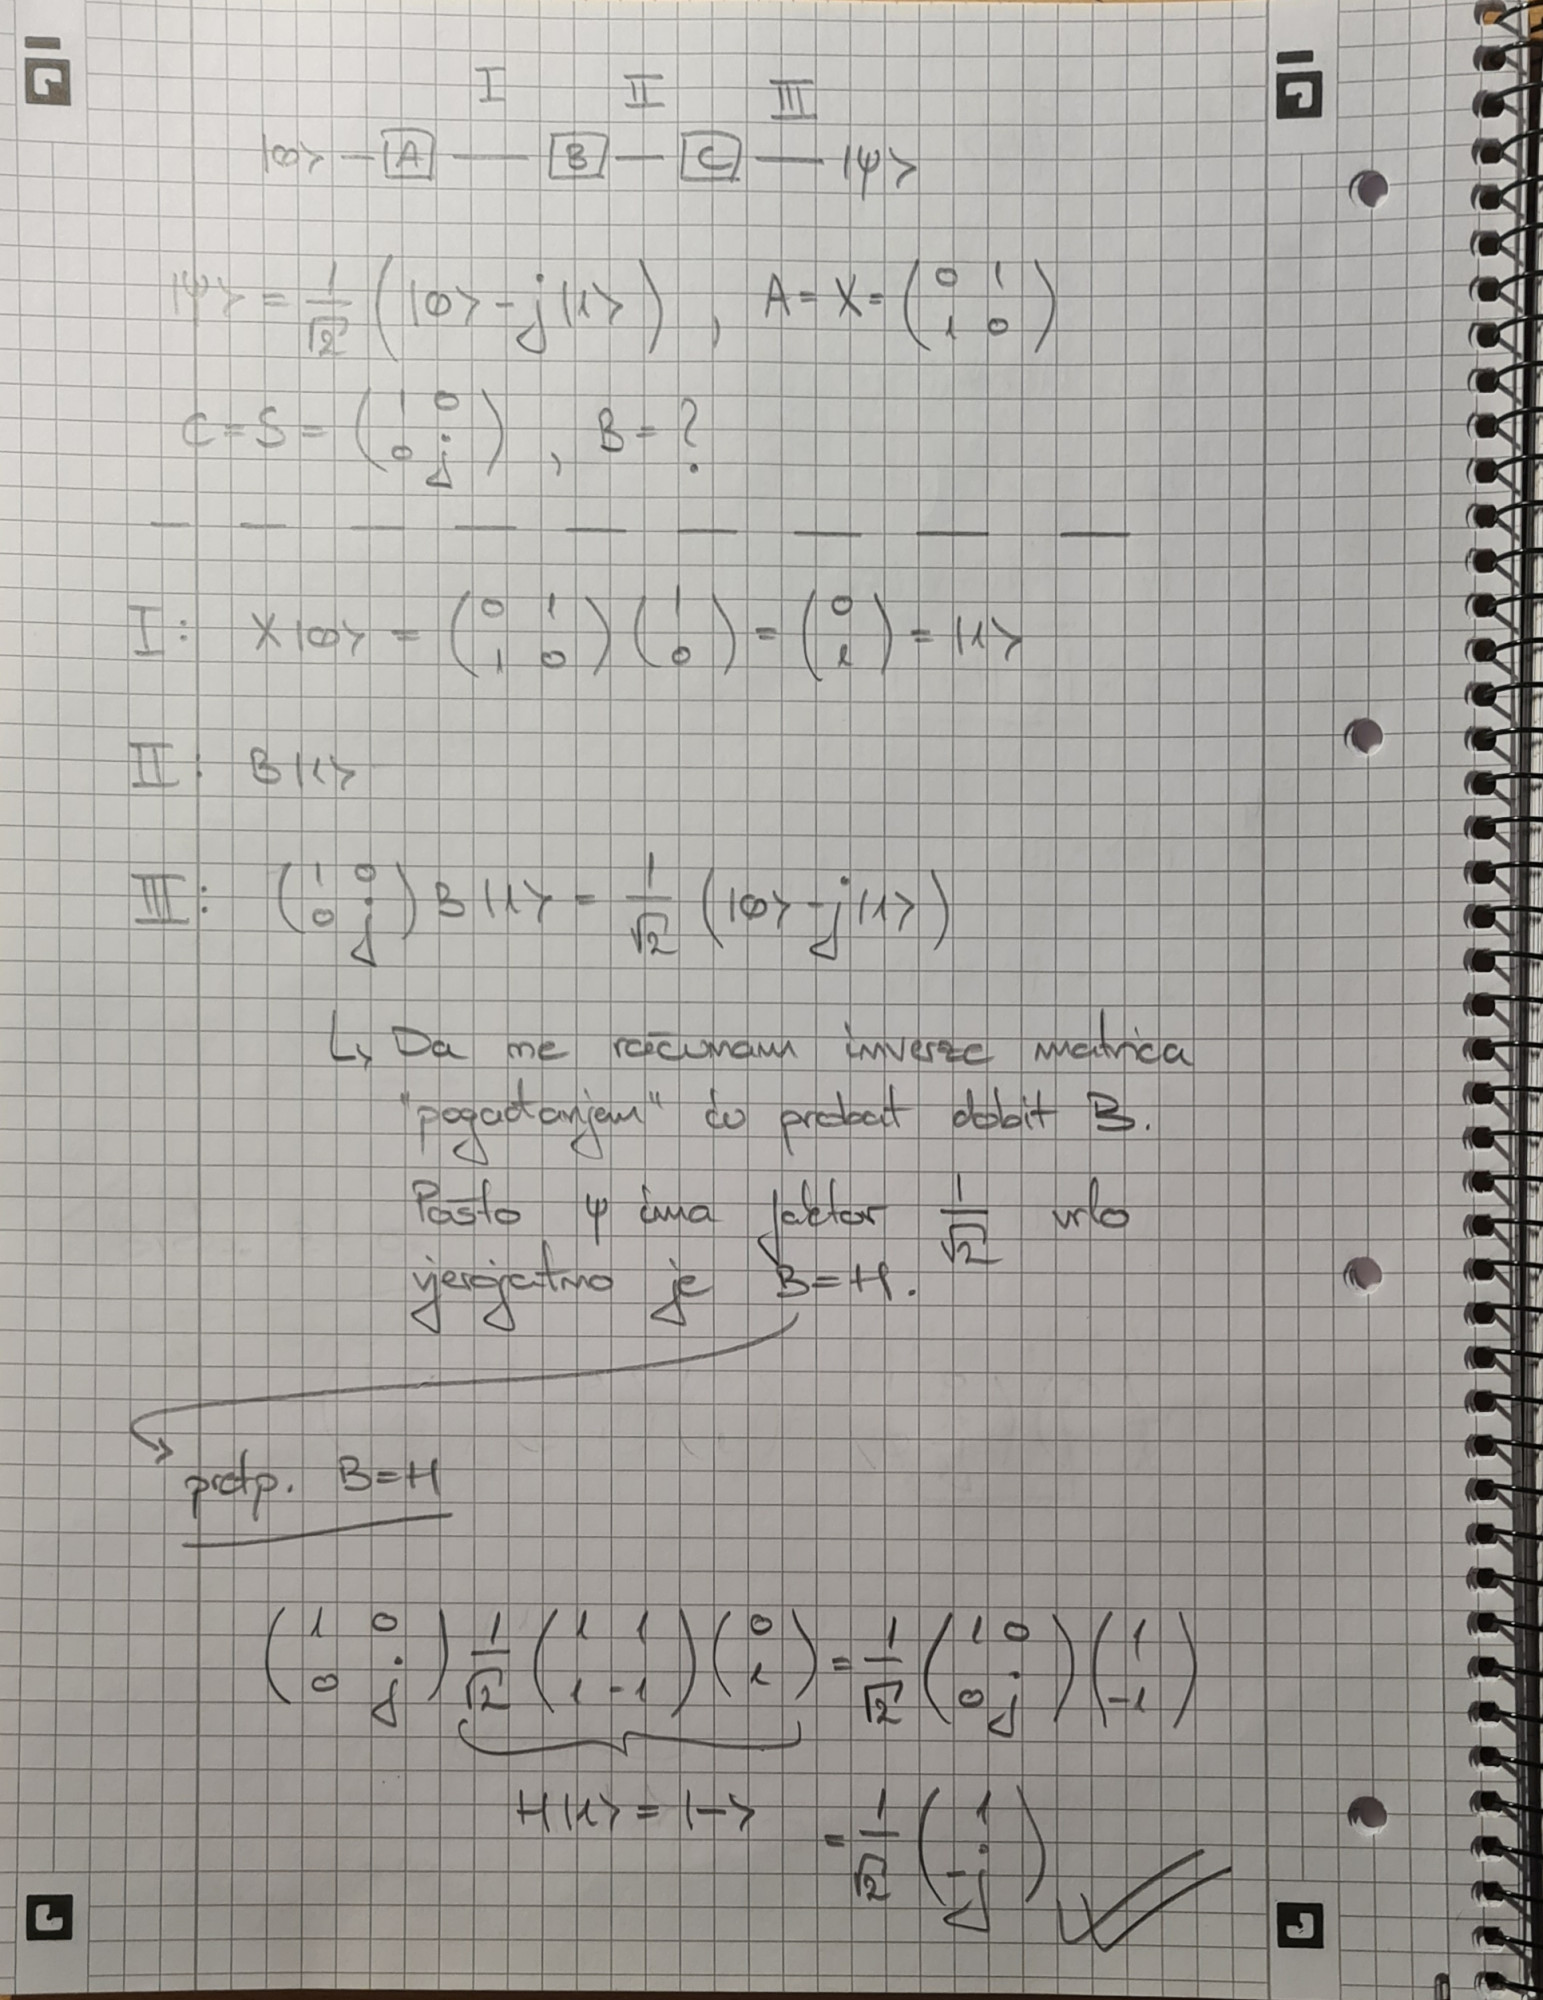 I II III
|0> — A — B — C — |ψ>
|ψ> = 1/√2 (|0> - j|1>) , A = X = (0 1 1 0)
C = S = (1 0 0 j) , B = ?
I: X|0> = (0 1 1 0) (1 0) = (0 1) = |1>
II: B|1>
III: (1 0 0 j) B|1> = 1/√2 (|0> - j|1>)
↳ Da ne računam inverze matrica
"pogađanjem" ću probat dobit B.
Pošto ψ ima faktor 1/√2 vrlo
vjerojatno je B=H.
pretp. B=H
(1 0 0 j) 1/√2 (1 1 1 -1) (0 1) = 1/√2 (1 0 0 j) (1 -1)
H|1> = |-> = 1/√2 (1 -j)